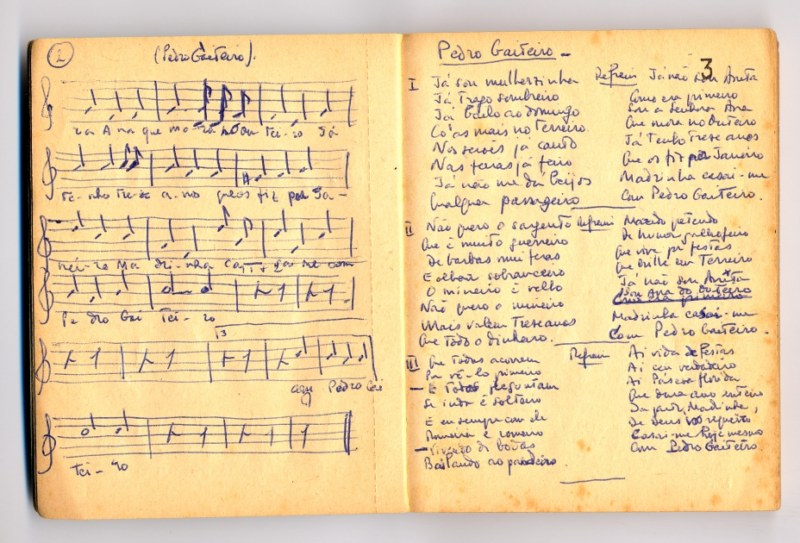 2
(Pedro Gaiteiro).
ra A na que mo-ra no ou tei-ro Já
te-nho tre-ze a-nos que os fiz por Ja-
nei-ro Ma dri-nha ca sai me com
Pe dro Gai Tei-ro
13
Pedro Gai
Tei-ro
Pedro Gaiteiro -
3
I Já sou mulherzinha
Já Trago sombreiro
Já bailo ao domingo
Co'as mais no Terreiro.
Nos serões já canto
Nas feiras já feiro
Já não me dá beijos
Qualquer passageiro
Refrem Já não sou Anita
Como era primeiro
Sou a Senhora Ana
Que mora no Outeiro
Já Tenho Treze anos
Que os fiz por Janeiro
Madrinha casai-me
Com Pedro Gaiteiro.
II Não quero o sargento
Que é muito guerreiro
De barbas mui feras
E olhar sobranceiro
O mineiro é velho
Não quero o mineiro
Mais valem Treze anos
Que Todo o dinheiro.
Refrem
Que vive pr'festas
Que brilha em Terreiro
Já não sou Anita
Sou Ana do Outeiro
Com era primeiro
Madrinha casai-me
Com Pedro Gaiteiro.
III Que Todas acorrem
Pra vê-lo primeiro
- E Todas perguntam
Se inda é solteiro
E eu sempre com ele
Romeira e romeiro
- de bodas
Bailando ao pandeiro.
Refrem Ai vida de festas
Ai céu verdadeiro
Ai Páscoa florida
Que dura ano inteiro
Da parte, Madrinha,
De Deus vos requeiro
Casai-me hoje mesmo
Com Pedro Gaiteiro.